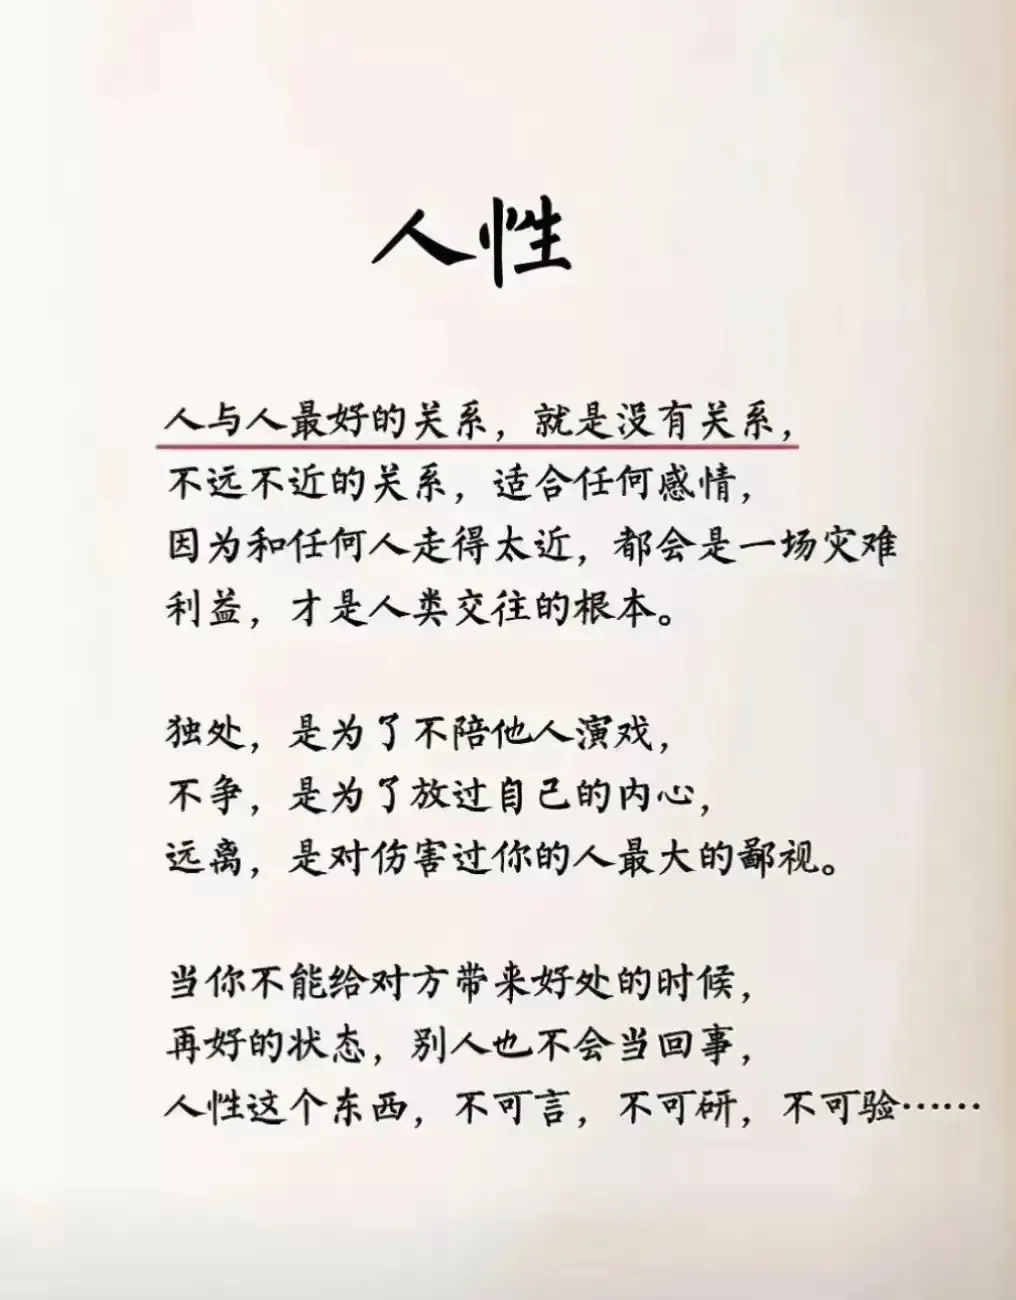 人性
人与人最好的关系，就是没有关系，
不远不近的关系，适合任何感情，
因为和任何人走得太近，都会是一场灾难
利益，才是人类交往的根本。
独处，是为了不陪他人演戏，
不争，是为了放过自己的内心，
远离，是对伤害过你的人最大的鄙视。
当你不能给对方带来好处的时候，
再好的状态，别人也不会当回事，
人性这个东西，不可言，不可研，不可验……